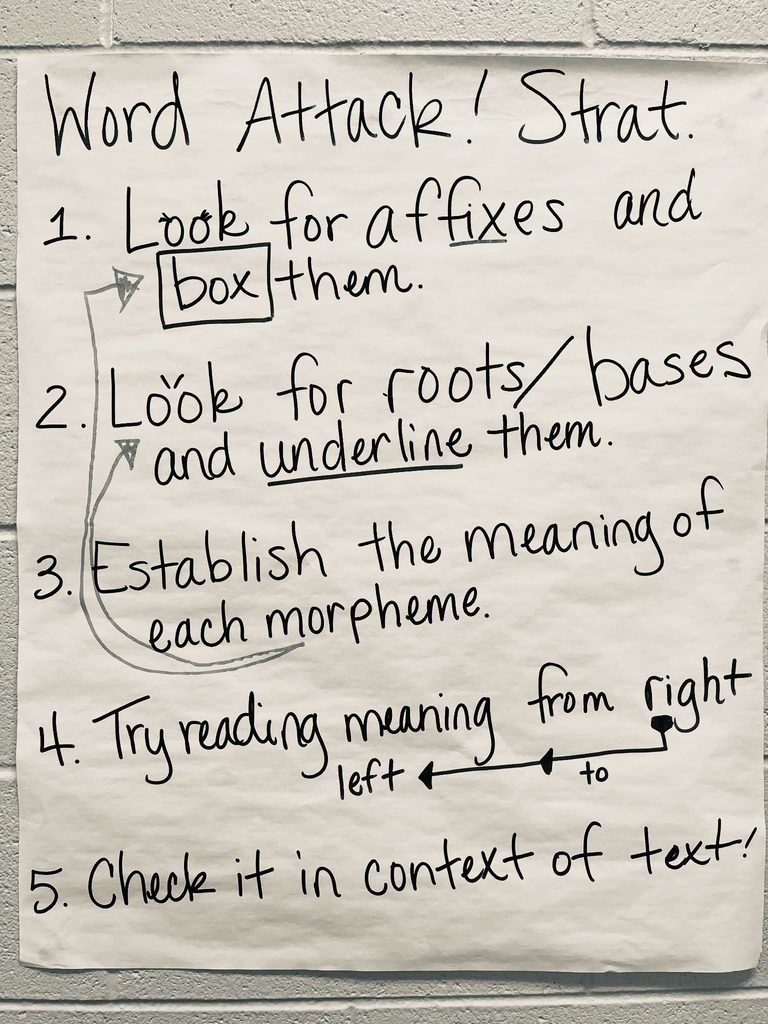 Word Attack! Strat.
1. Look for affixes and
box them.
2. Look for roots/bases
and underline them.
3. Establish the meaning of
each morpheme.
4. Try reading meaning from right
left to
5. Check it in context of text!